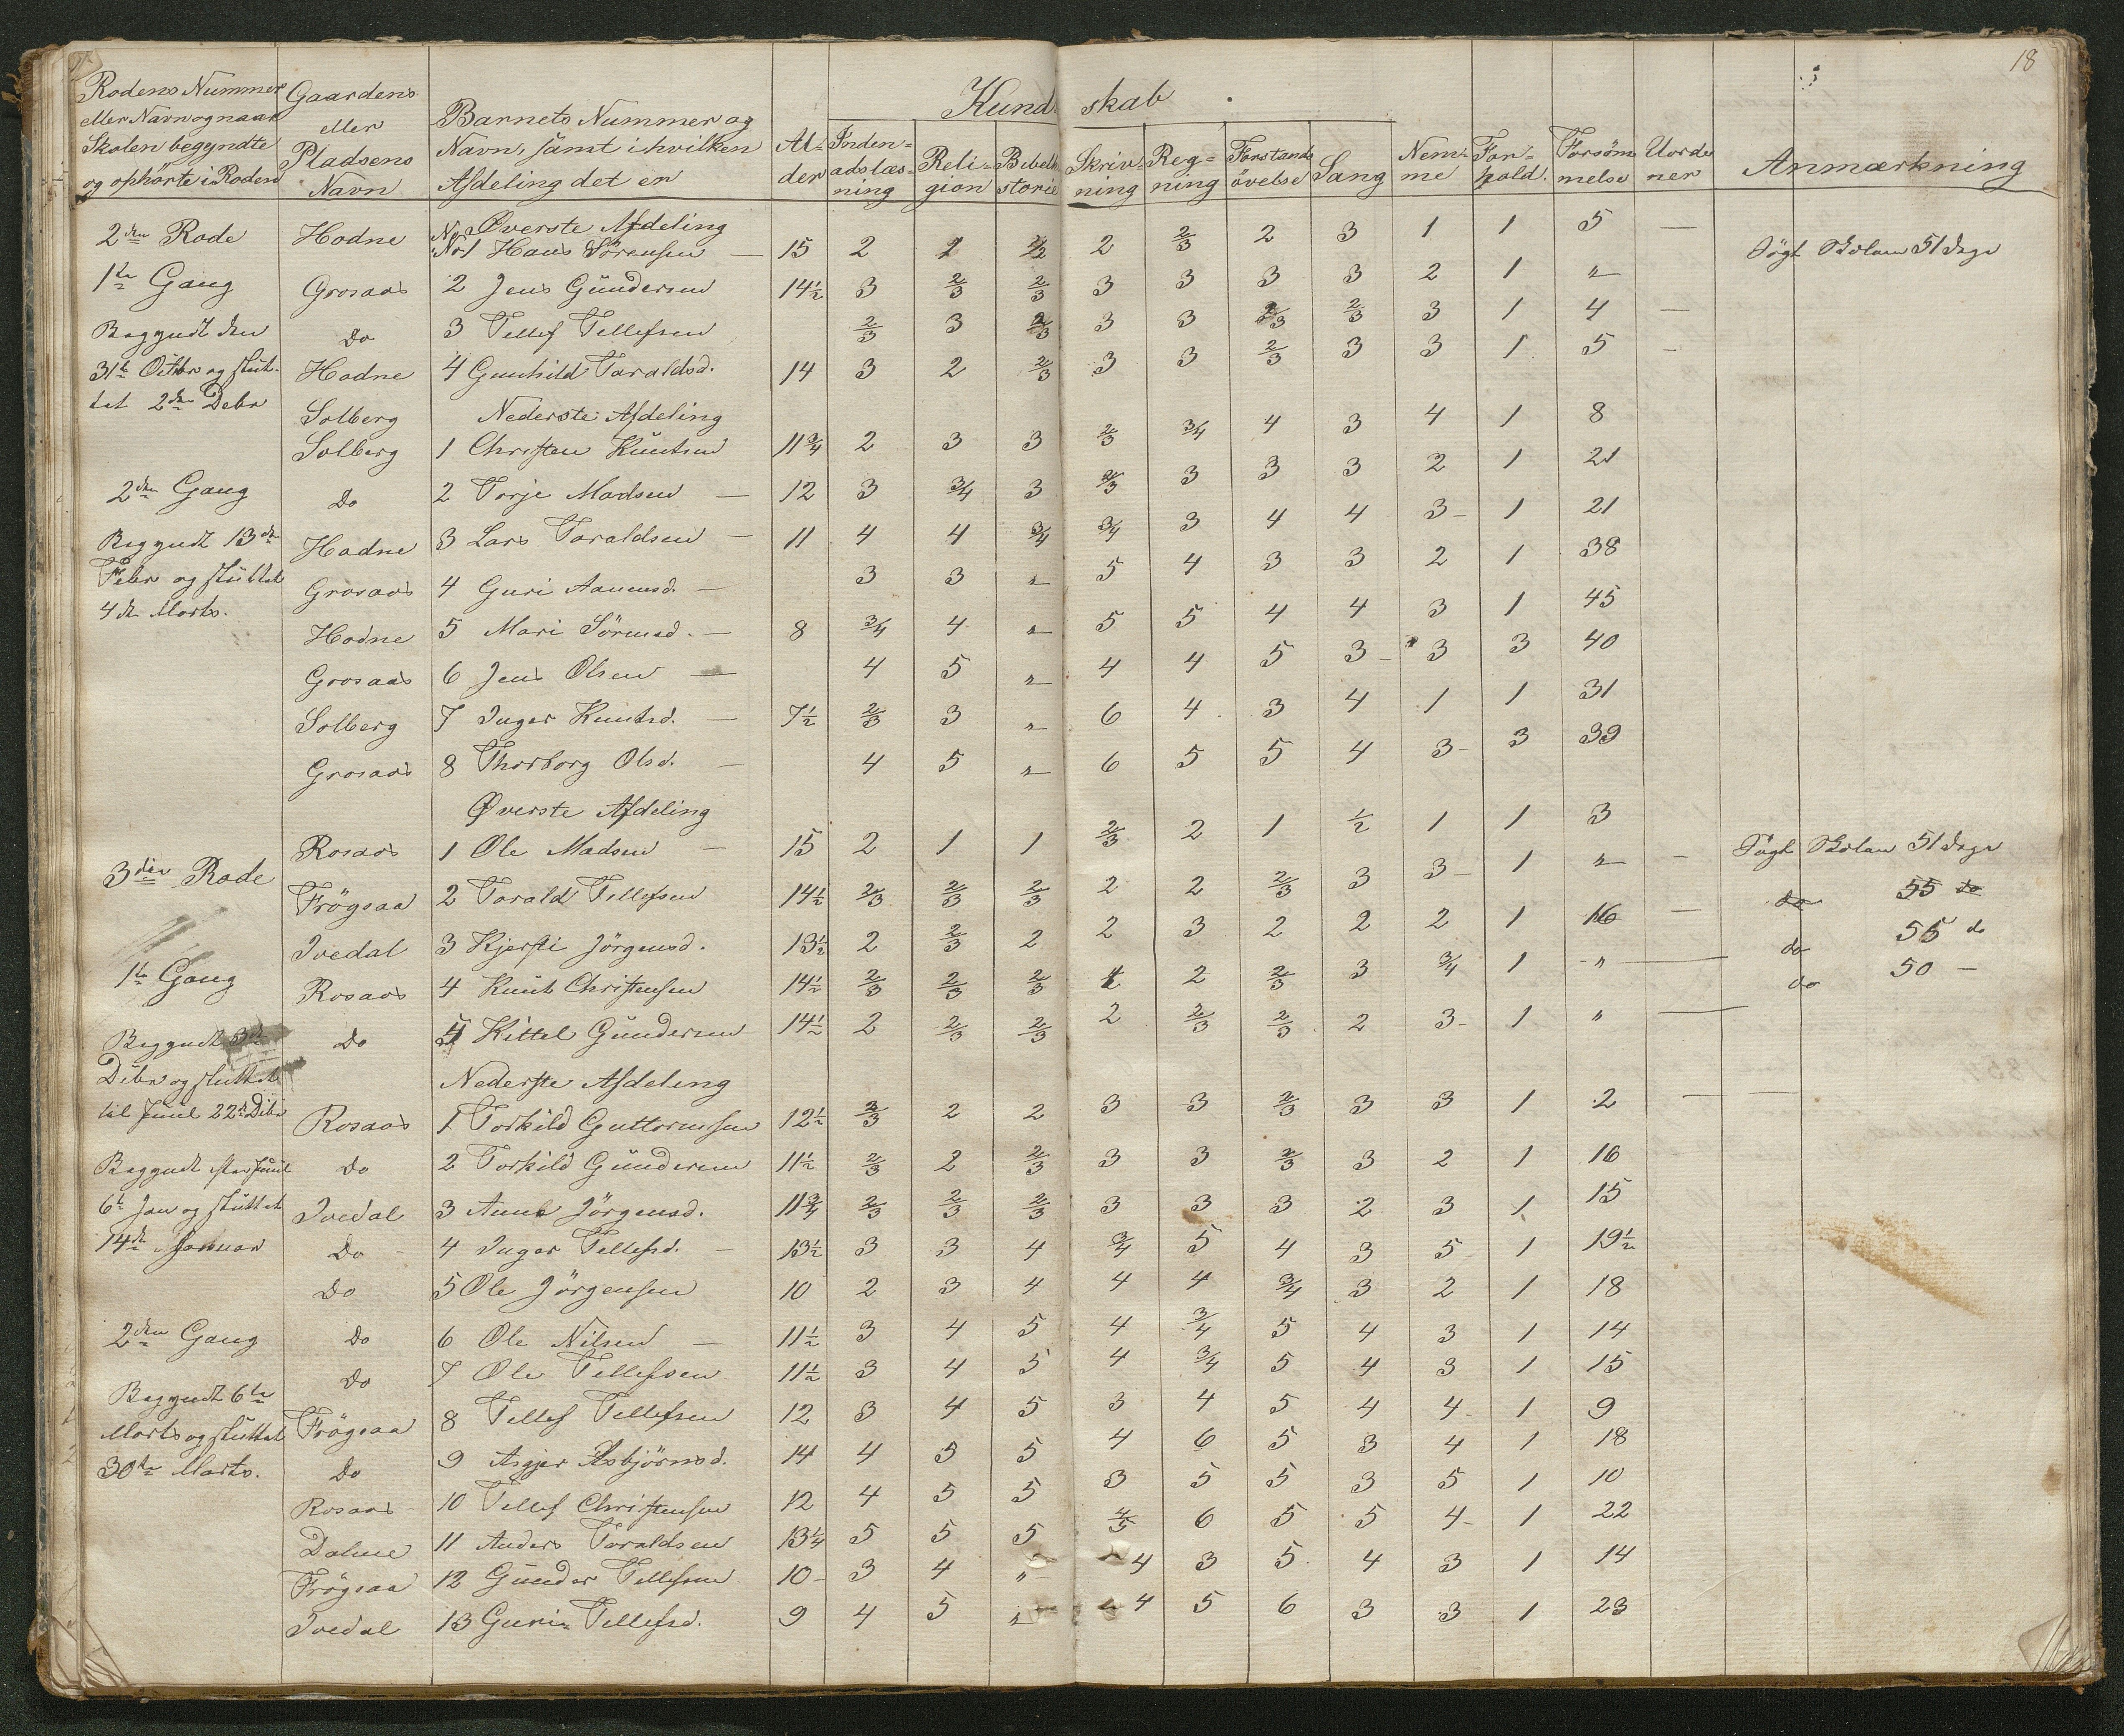 18
Rodens Nummer eller Navn og naar Skolen begyndte og ophörte i Roden | Gaardens eller Pladsens Navn | Barnets Nummer og Navn, samt i hvilken Afdeling det er | Alder | Kundskab | Nemme | Forhold | Forsömmelse | Uordener | Anmærkning
Indenadslæsning | Religion | Bibelhistorie | Skrivning | Regning | Forstandsövelse | Sang
Øverste Afdeling
2den Rode | Hodne | No 1 Hans Sörensen — | 15 | 2 | 2 | 1/2 | 2 | 2/3 | 2 | 3 | 1 | 1 | 5 | — | Sögt Skolen 51 Dage
1te Gang | Grosaas | 2 Jens Gündersen | 14½ | 3 | 2/3 | 2/3 | 3 | 3 | 3 | 3 | 2 | 1 | "
Begyndt den | Do | 3 Tellef Tellefsen | 2/3 | 3 | 2/3 | 3 | 3 | 2/3 | 2/3 | 3 | 1 | 4 | —
31te Octbr og slut- | Hodne | 4 Gunhild Taraldsd. | 14 | 3 | 2 | 2/3 | 3 | 3 | 2/3 | 3 | 3 | 1 | 5 | —
tet 2den Debr
Solberg | Nederste Afdeling
Solberg | 1 Christen Knutsen | 11¾ | 2 | 3 | 3 | 2/3 | 3/4 | 4 | 3 | 4 | 1 | 8
2den Gang | Do | 2 Torje Madsen — | 12 | 3 | 3/4 | 3 | 2/3 | 3 | 3 | 3 | 2 | 1 | 21
Begyndt 13de | Hodne | 3 Lars Taraldsen — | 11 | 4 | 4 | 3/4 | 3/4 | 3 | 4 | 4 | 3 | 1 | 21
Febr og sluttet | Grosaas | 4 Guri Aanensd. — | 3 | 3 | " | 5 | 4 | 3 | 3 | 2 | 1 | 38
4de Marts.
Hodne | 5 Mari Sörensd. — | 8 | 3/4 | 4 | " | 5 | 5 | 4 | 4 | 3 | 1 | 45
Grosaas | 6 Jens Olsen — | 4 | 5 | " | 4 | 4 | 5 | 3 | 3 | 3 | 40
Solberg | 7 Inger Knutsd. — | 7½ | 2/3 | 3 | " | 6 | 4 | 3 | 4 | 1 | 1 | 31
Grosaas | 8 Thorborg Olsd. — | 4 | 5 | " | 6 | 5 | 5 | 4 | 3 | 3 | 39
Øverste Afdeling
3die Rode | Rosaas | 1 Ole Madsen — | 15 | 2 | 1 | 1 | 2/3 | 2 | 1 | 1/2 | 1 | 1 | 3 | Sögt Skolen 51 Dage
Frögsaa | 2 Tarald Tellefsen | 14½ | 2/3 | 2/3 | 2/3 | 2 | 2 | 2/3 | 3 | 3 | 1 | " | — | do 55 do
Ivedal | 3 Kjersti Jörgensd. | 13½ | 2 | 2/3 | 2 | 2 | 3 | 2 | 2 | 2 | 1 | 16 | — | do 55 do
1te Gang | Rosaas | 4 Knut Christensen | 14½ | 2/3 | 2/3 | 2/3 | 2 | 2/3 | 3 | 3/4 | 1 | " | — | do 50 —
Begyndt | Do | 5 Kittel Gündersen | 14½ | 2 | 2/3 | 2/3 | 2 | 2/3 | 2/3 | 2 | 3 | 1 | " | —
Debr og sluttet | Nederste Afdeling
til Juul 22de Debr | Rosaas | 1 Torkild Guttormsen | 12½ | 2/3 | 2 | 2 | 3 | 3 | 2/3 | 3 | 3 | 1 | 2 | —
Begyndt efter Juul | Do | 2 Torkild Gündersen | 11½ | 2/3 | 2 | 2/3 | 3 | 3 | 2/3 | 3 | 2 | 1 | 16
6te Jan og sluttet | Ivedal | 3 Anne Jörgensd. | 11¾ | 2/3 | 2/3 | 2/3 | 3 | 3 | 3 | 2 | 3 | 1 | 15
14de Januar | Do | 4 Inger Tellefsd. — | 13½ | 3 | 3 | 4 | 3/4 | 5 | 4 | 3 | 5 | 1 | 19½
Do | 5 Ole Jörgensen | 10 | 2 | 3 | 4 | 4 | 4 | 3/4 | 3 | 2 | 1 | 18
2den Gang | Do | 6 Ole Nilsen — | 11½ | 3 | 4 | 5 | 4 | 3/4 | 5 | 4 | 3 | 1 | 14
Do | 7 Ole Tellefsen | 11½ | 3 | 4 | 5 | 4 | 3/4 | 5 | 4 | 3 | 1 | 15
Begyndt 6te
Marts og sluttet | Frögsaa | 8 Tellef Tellefsen | 12 | 3 | 4 | 5 | 3 | 4 | 5 | 4 | 4 | 1 | 9
30te Marts. | Do | 9 Asgjer Asbjörnsd. | 14 | 4 | 5 | 5 | 4 | 6 | 5 | 3 | 4 | 1 | 18
Rosaas | 10 Tellef Christensen | 12 | 4 | 5 | 5 | 3 | 5 | 5 | 3 | 5 | 1 | 10
Dalene | 11 Anders Taraldsen | 13¼ | 5 | 5 | 5 | 4/5 | 6 | 5 | 5 | 4 | 1 | 22
Frögsaa | 12 Günder Tellefsen | 10 | 3 | 4 | " | 4 | 3 | 5 | 4 | 3 | 1 | 14
Ivedal | 13 Guri Tellefsd. | 9 | 4 | 5 | " | 4 | 5 | 6 | 3 | 3 | 1 | 23